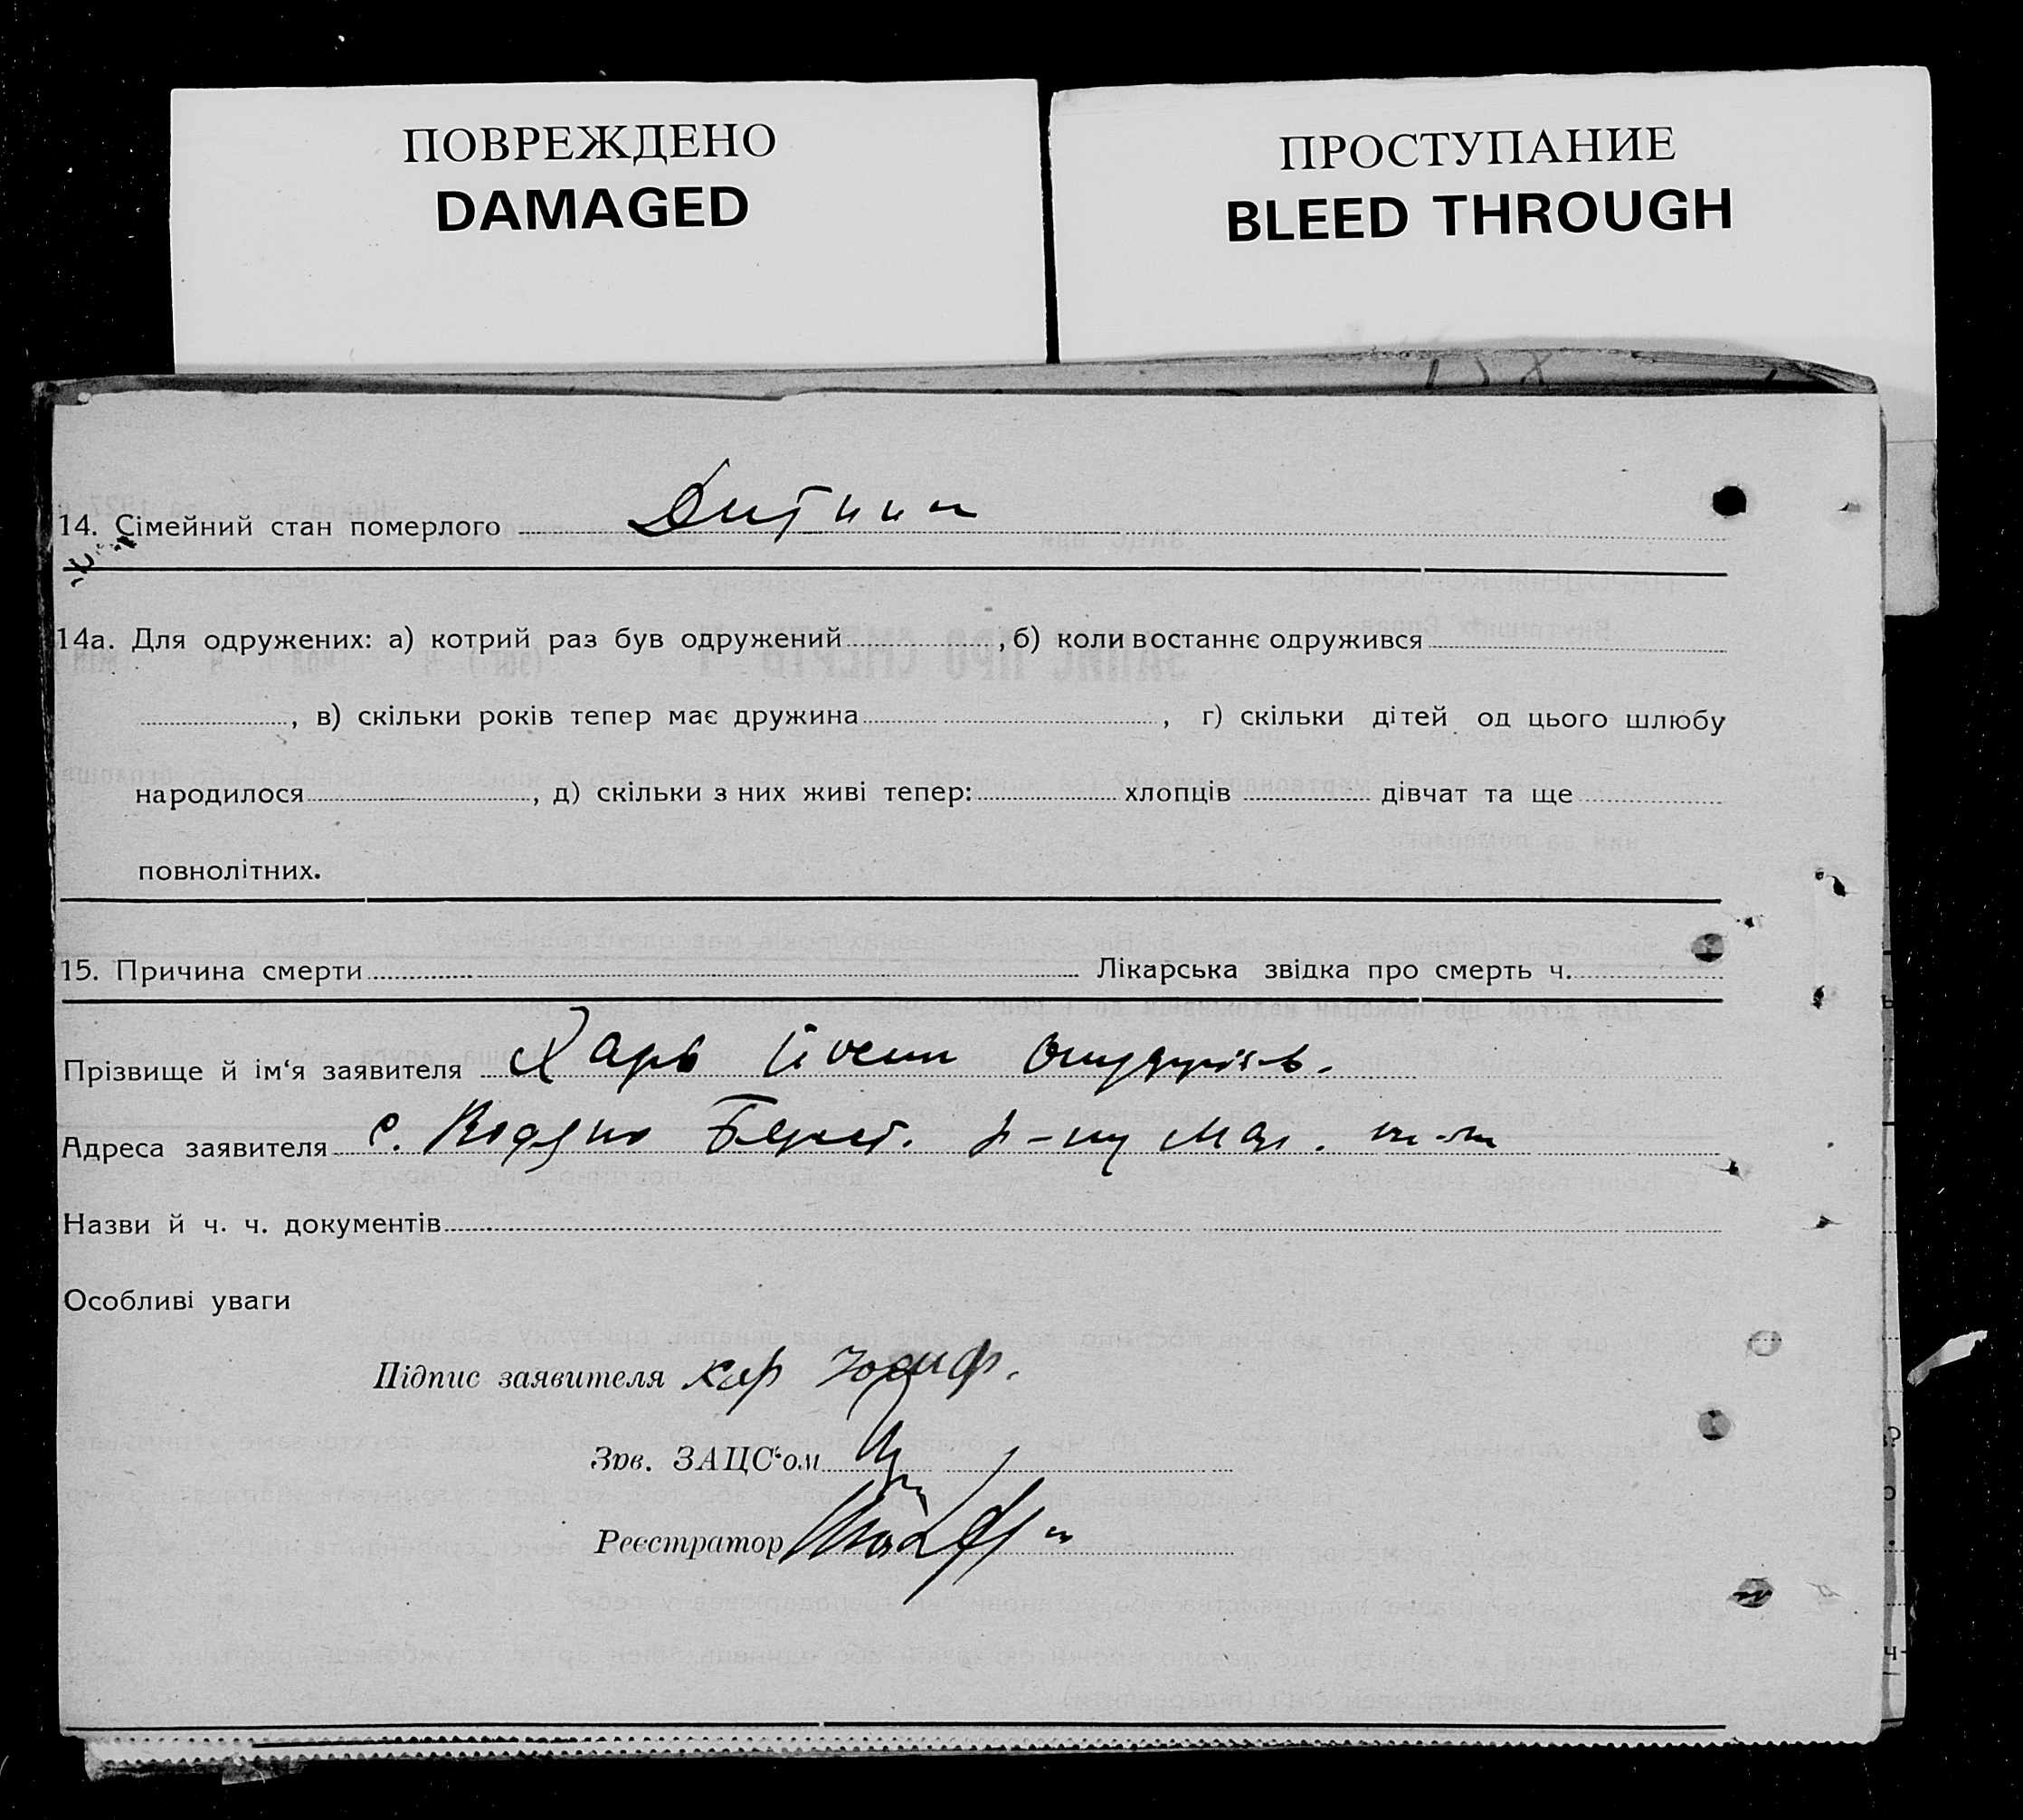 ПОВРЕЖДЕНО
DAMAGED
ПРОСТУПАНИЕ
BLEED THROUGH
14. Сімейний стан померлого Дитина
14а. Для одружених: а) котрий раз був одружений , б) коли востаннє одружився
, в) скільки років тепер має дружина , г) скільки дітей од цього шлюбу
народилося , д) скільки з них живі тепер: хлопців дівчат та ще
повнолітних.
15. Причина смерти Лікарська звідка про смерть ч.
Прізвище й ім‘я заявителя Харь
Адреса заявителя с. р-ну
Назви й ч. ч. документів
Особливі уваги
Підпис заявителя
Зав. ЗАЦС‘ом
Реєстратор